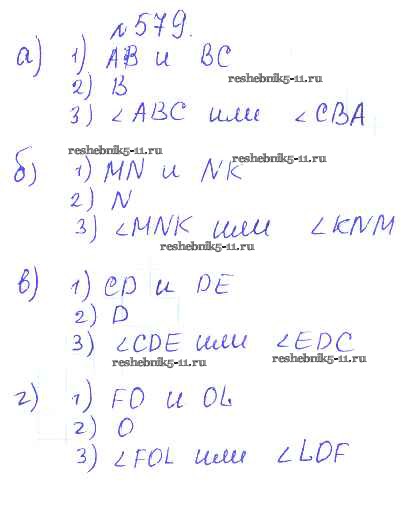 №579.
а) 1) AB и BC
reshebnik5-11.ru
2) B
3) ∠ABC или ∠CBA
reshebnik5-11.ru
reshebnik5-11.ru
б) 1) MN и NK
2) N
3) ∠MNK или ∠KNM
reshebnik5-11.ru
в) 1) CD и DE
2) D
3) ∠CDE или ∠EDC
reshebnik5-11.ru
reshebnik5-11.ru
г) 1) FO и OL
2) O
3) ∠FOL или ∠LOF